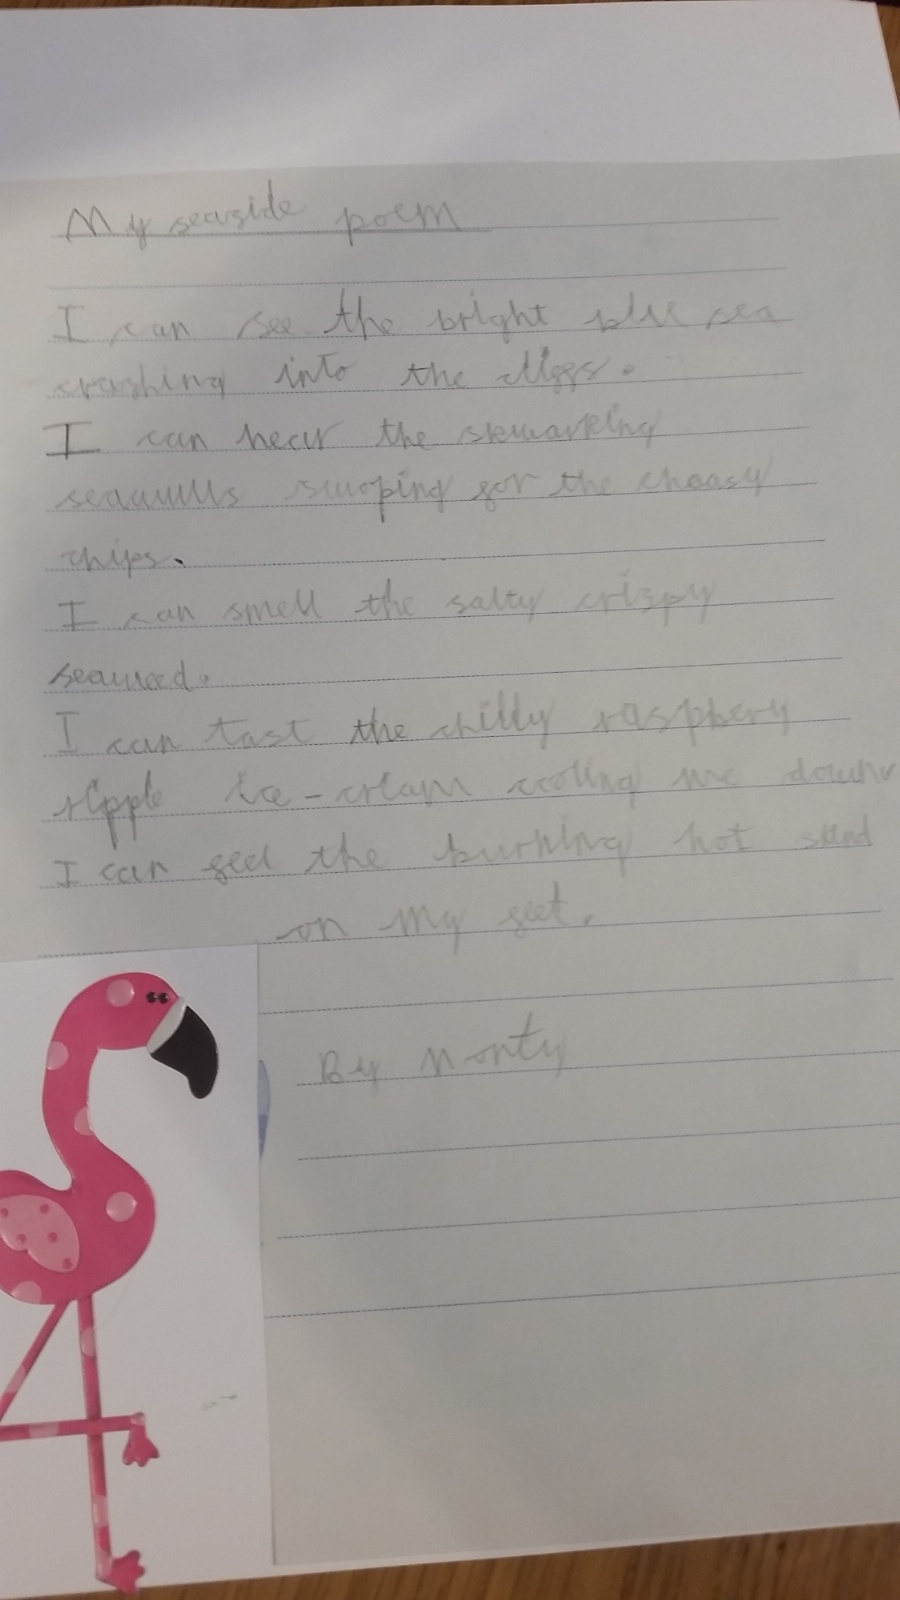 My seaside poem
I can see the bright blue sea
crashing into the cliffs.
I can hear the skwarking
seaguls swoping for the cheasy
chips.
I can smell the salty crispy
seaweed.
I can tast the chilly raspbery
ripple ice-cream cooling me down
I can feel the burning hot sand
on my feet.
By Monty